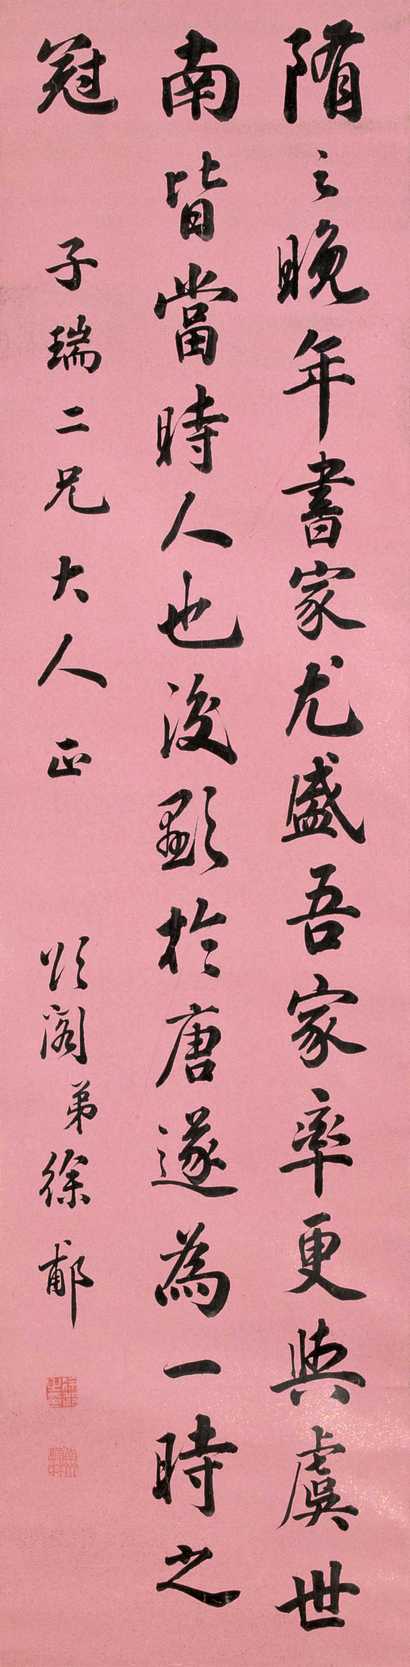 隋之晚年書家尤盛吾家率更與虞世
南皆當時人也後顯於唐遂為一時之
冠
子瑞二兄大人正
頌閣弟徐郙